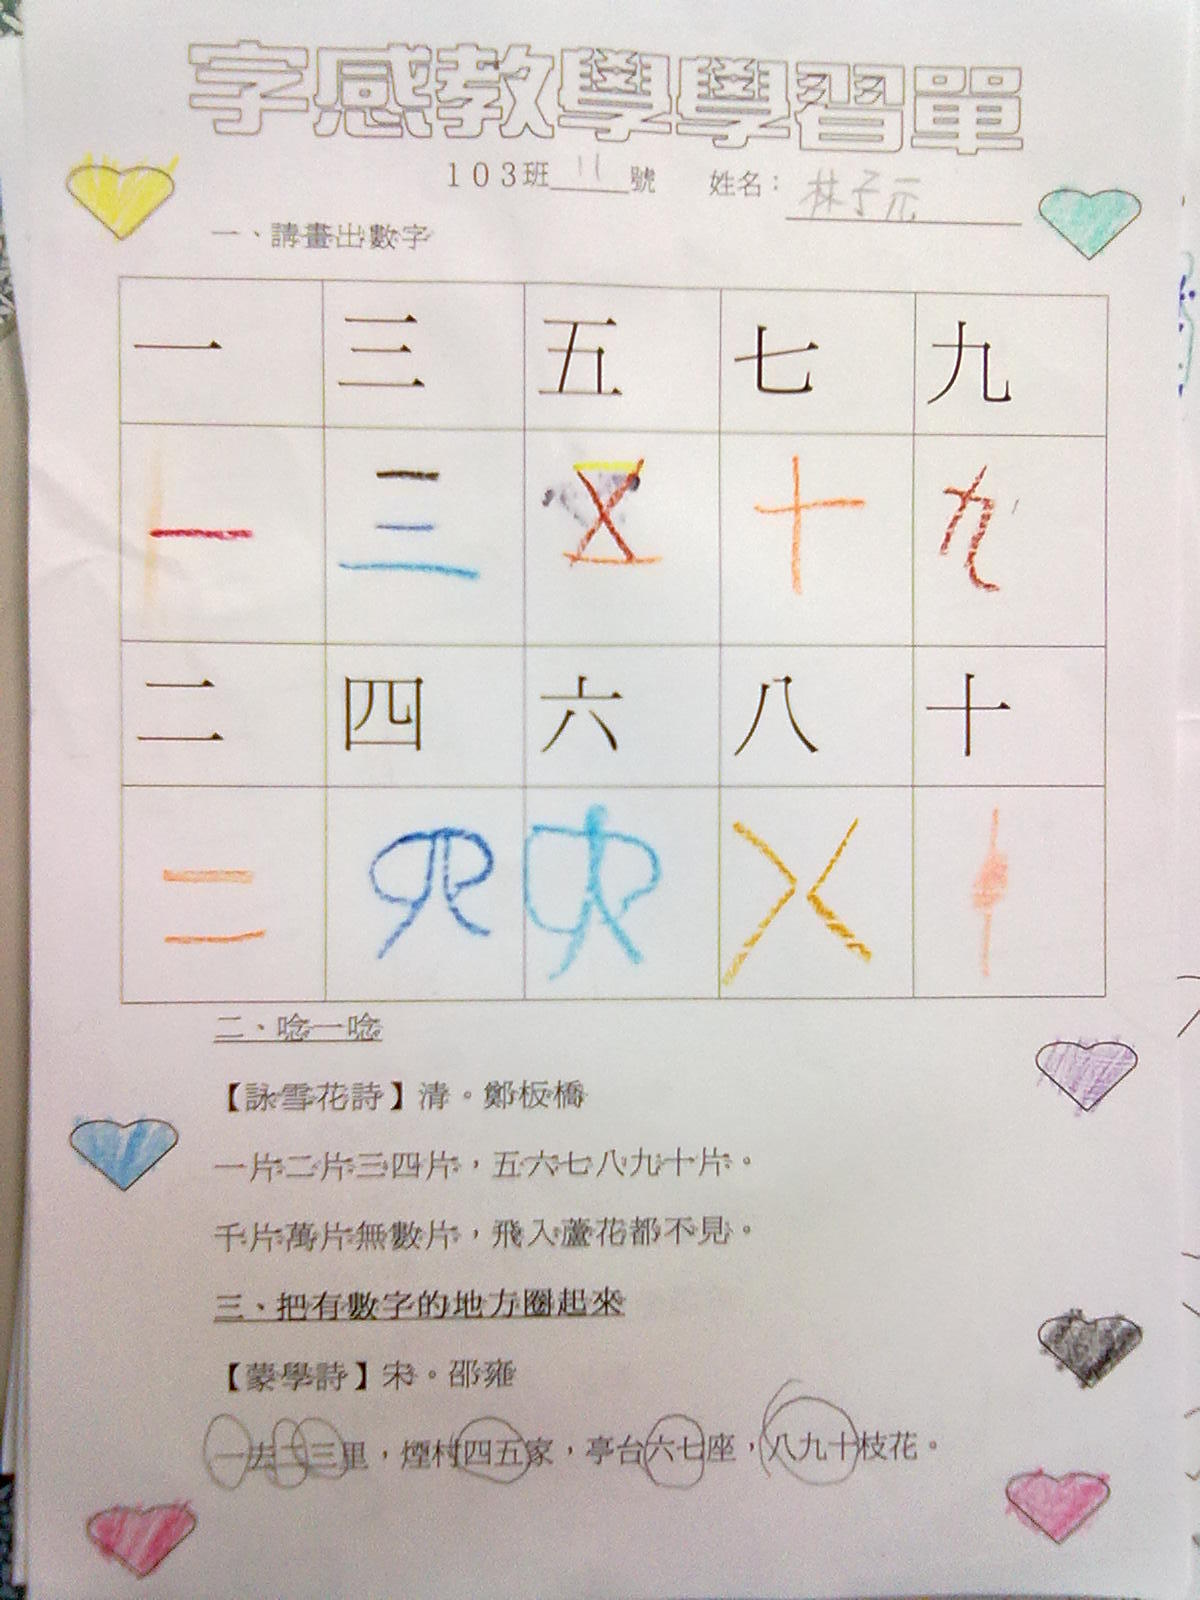 字感教學學習單
103班 11 號 姓名：林子元
一、請畫出數字
一 三 五 七 九
二 四 六 八 十
二、唸一唸
【詠雪花詩】清。鄭板橋
一片二片三四片，五六七八九十片。
千片萬片無數片，飛入蘆花都不見。
三、把有數字的地方圈起來
【蒙學詩】宋。邵雍
一去二三里，煙村四五家，亭台六七座，八九十枝花。